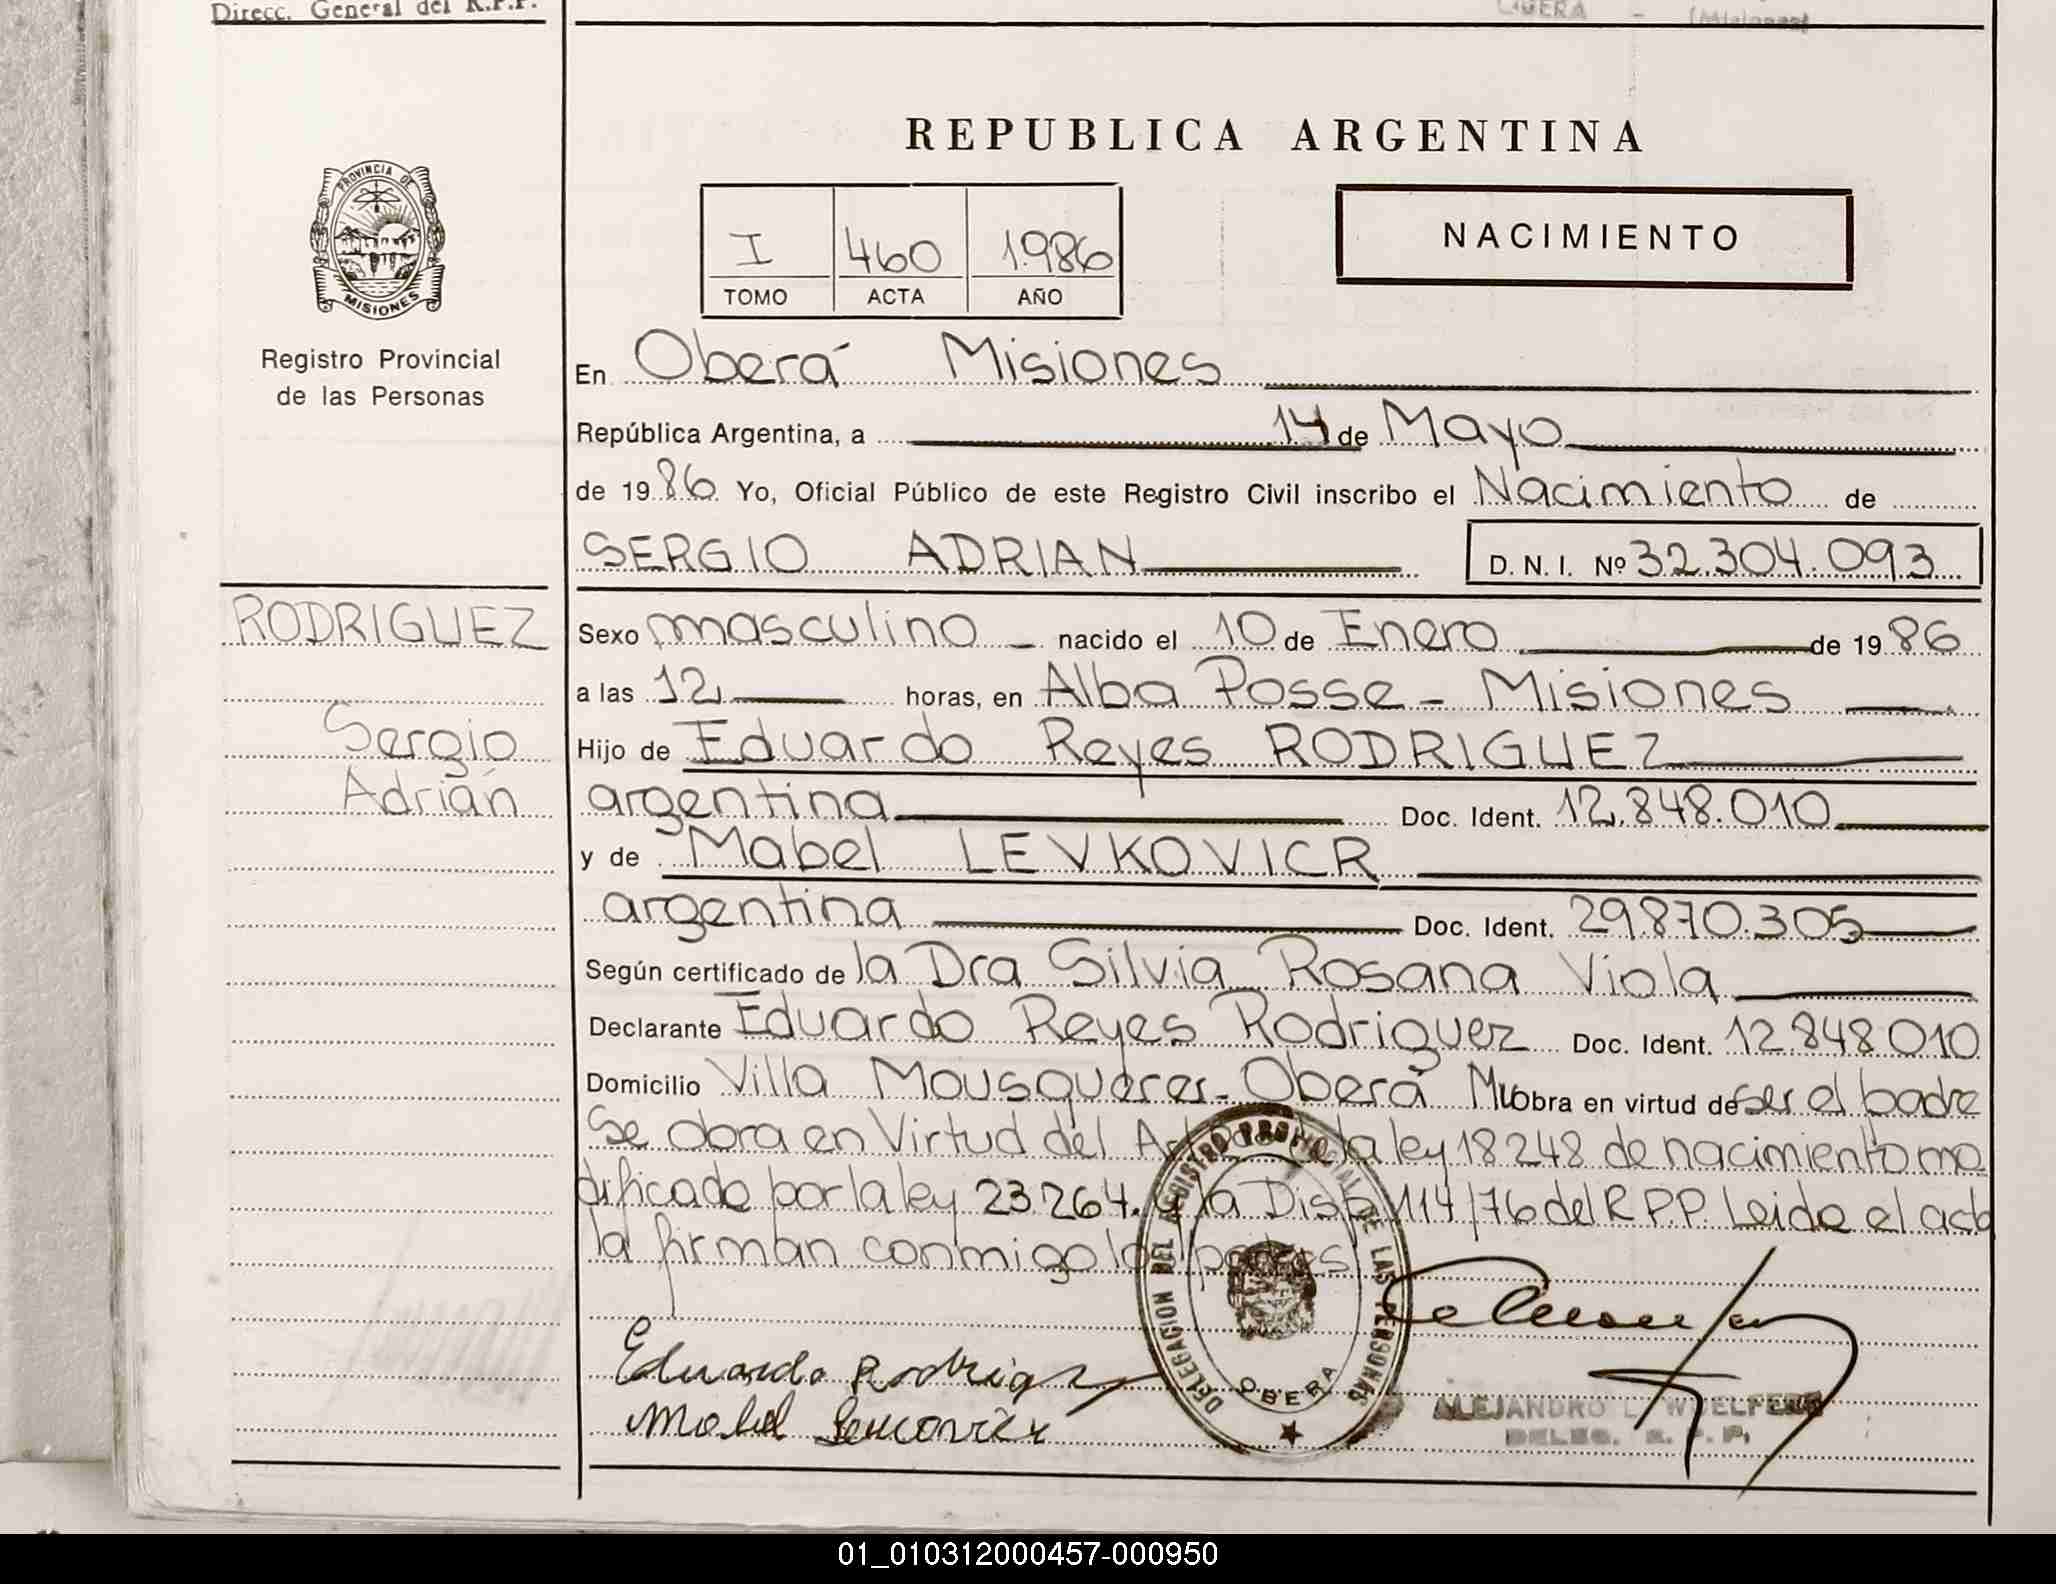 Direcc. General del R.P.P.
OBERA - (Misiones)
PROVINCIA DE
MISIONES
Registro Provincial
de las Personas
REPUBLICA ARGENTINA
I 460 1986
TOMO ACTA AÑO
NACIMIENTO
En Oberá Misiones
República Argentina, a 14 de Mayo
de 1986 Yo, Oficial Público de este Registro Civil inscribo el Nacimiento de
SERGIO ADRIAN D. N. I. Nº 32.304.093
RODRIGUEZ
Sergio
Adrián
Sexo masculino nacido el 10 de Enero de 1986
a las 12 horas, en Alba Posse - Misiones
Hijo de Eduardo Reyes RODRIGUEZ
argentina Doc. Ident. 12.848.010
y de Mabel LEVKOVICR
argentina Doc. Ident. 29.870.305
Según certificado de la Dra Silvia Rosana Viola
Declarante Eduardo Reyes Rodriguez Doc. Ident. 12.848.010
Domicilio Villa Oberá obra en virtud de ser el padre
Se obra en Virtud del la ley 18248 de nacimiento mo
dificado por la ley 23.264. y la Disp 114/76 del R.P.P. Leida el acta
la firman conmigo los padres
DELEGACION DEL REGISTRO PROVINCIAL DE LAS PERSONAS
OBERA
Eduardo Rodrigz
Mabel
ALEJANDRO L. WOELFERT
DELEG. R. P. P.
01_010312000457-000950